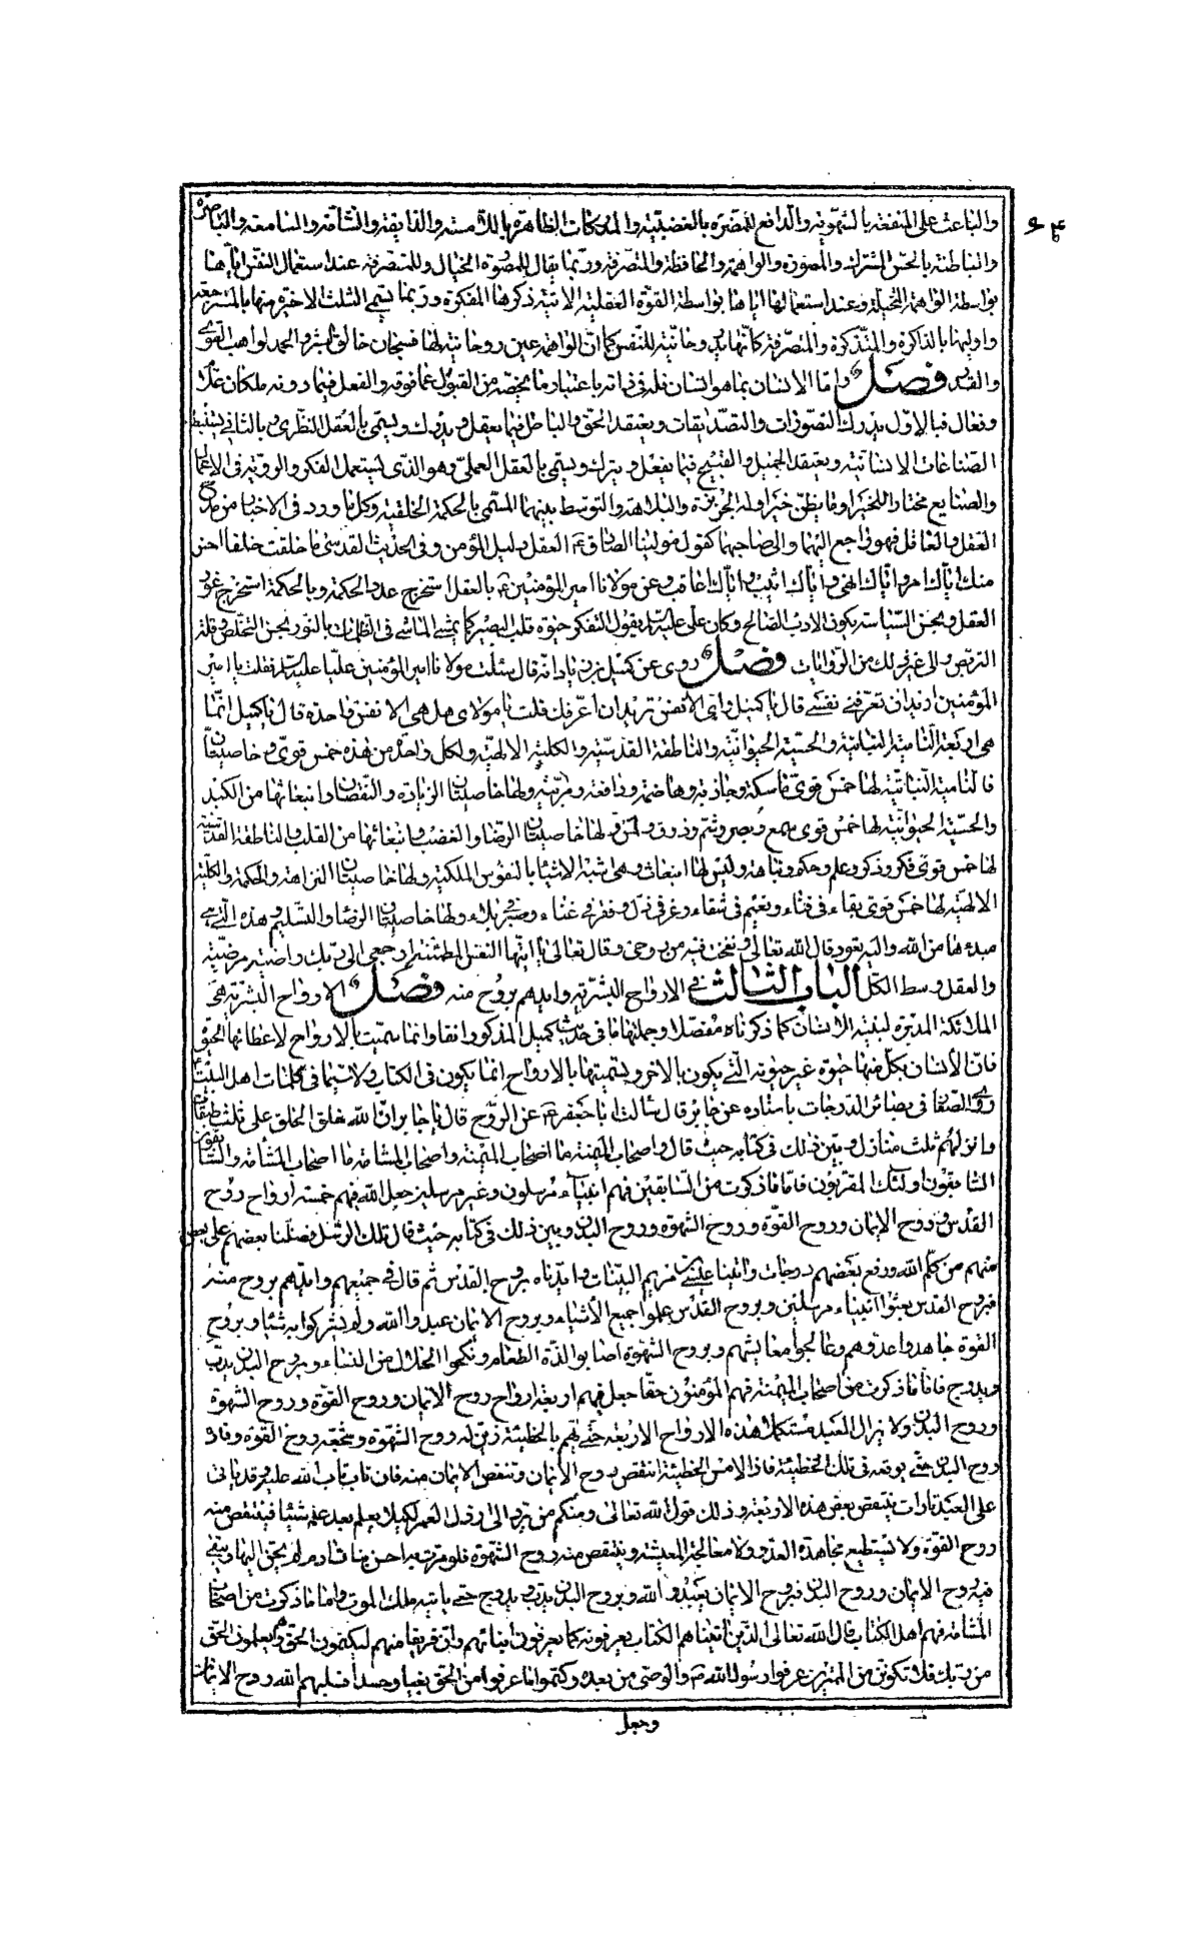 ٩٤
والباعث على المنفعة بالشهوية والدافع للمضرة بالغضبية والمدركات الظاهرة باللامسة والذايقة والشامة والسامعة والباصرة
والباطنة بالحس المشترك والمصورة والواهمة والحافظة والمتصرفة وربما يقال للمصورة الخيال وللمتصرفة عند استعمال النفس اياها
بواسطة الواهمة المتخيلة وعند استعمالها اياها بواسطة القوة العقلية الاتية ذكرها المفكرة وربما يسمى الثلث الاخيرة منها بالمسترجعة
واوليها بالذاكرة والمتذكرة والمتصرفة كانها يد روحانية للنفس كما ان الواهمة عين روحانية لها فسبحان خالق البشر والحمد لواهب القوى
والقدر فصل واما الانسان بما هو انسان فله في ذاته باعتبار ما يخصه من القبول عما فوقه والفعل فيما دونه ملكتان علامة
وفعالة فبالاول يدرك التصورات والتصديقات ويعتقد الحق والباطل فيما يعقل ويدرك ويسمى بالعقل النظرى وبالثاني يستنبط
الصناعات الانسانية ويعتقد الجميل والقبيح فيما يفعل ويترك ويسمى بالعقل العملى وهو الذى يستعمل الفكر والروية في الاعمال
والصنايع مختارا للخير او ما يظن خيرا وله الجربزة والبلاهة والتوسط بينهما المسمى بالحكمة الخلقية وكل ما ورد في الاخبار من مدح
العقل والعاقل فهو راجع اليهما والى صاحبهما كقول مولينا الصادق ع العقل دليل المؤمن وفي الحديث القدسى ما خلقت خلقا احسن
منك اياك امر واياك انهى واياك اثيب واياك اعاقب وعن مولانا امير المؤمنين ع بالعقل استخرج غور الحكمة وبالحكمة استخرج غور
العقل وبحسن السياسة يكون الادب الصالح وكان على عليه السلام يقول التفكر حيوة قلب البصير كما يمشى الماشى في الظلمات بالنور بحسن التخلص وقلة
التربص والى غير ذلك من الروايات فصل روى عن كميل بن زياد انه قال سئلت مولانا امير المؤمنين عليا عليه السلام فقلت يا امير
المؤمنين اريد ان تعرفنى نفسى قال يا كميل واى الانفس تريد ان اعرفك قلت يا مولاى هل هى الا نفس واحدة قال يا كميل انما
هى اربعة النامية النباتية والحسية الحيوانية والناطقة القدسية والكلية الالهية ولكل واحدة من هذه خمس قوى وخاصيتان
فالنامية النباتية لها خمس قوى ماسكة وجاذبة وهاضمة ودافعة ومربية ولها خاصيتان الزيادة والنقصان وانبعاثها من الكبد
والحسية الحيوانية لها خمس قوى سمع وبصر وشم وذوق ولمس ولها خاصيتان الرضا والغضب وانبعاثها من القلب والناطقة القدسية
لها خمس قوى فكر وذكر وعلم وحكم ونباهة وليس لها انبعاث وهى اشبه الاشياء بالنفوس الملكية ولها خاصيتان النزاهة والحكمة والكلية
الالهية لها خمس قوى بقاء في فناء ونعيم في شقاء وعز في ذل وفقر في غناء وصبر في بلاء ولها خاصيتان الرضا والتسليم وهذه التى
مبدءها من الله واليه تعود قال الله تعالى ونفخت فيه من روحى وقال تعالى يا ايتها النفس المطمئنة ارجعى الى ربك راضية مرضية
والعقل وسط الكل الباب الثالث في الارواح البشرية وايدهم بروح منه فصل الارواح البشرية هى
الملائكة المدبرة لبنية الانسان كما ذكرناه مفصلا وجملتها ما في حديث كميل المذكور انفا وانما سميت بالارواح لاعطائها الحيوة
فان الانسان بكل منها حيوة غير حيوته التى يكون بالاخر وتسميتها بالارواح انما يكون في الكتاب ولا سيما في كلمات اهل البيت
روى الصفار في بصائر الدرجات باسناده عن جابر قال سألت ابا جعفر ع عن الروح قال يا جابر ان الله خلق الخلق على ثلث طبقات
وانزلهم ثلث منازل وبين ذلك في كتابه حيث قال واصحاب الميمنة ما اصحاب الميمنة واصحاب المشامة ما اصحاب المشامة والسابقون
السابقون اولئك المقربون فاما ما ذكرت من السابقين فهم انبياء مرسلون وغير مرسلين جعل الله فيهم خمسة ارواح روح
القدس وروح الايمان وروح القوة وروح الشهوة وروح البدن وبين ذلك في كتابه حيث قال تلك الرسل فضلنا بعضهم على بعض
منهم من كلم الله ورفع بعضهم درجات واتينا عيسى بن مريم البينات وايدناه بروح القدس ثم قال في جميعهم وايدهم بروح منه
فبروح القدس بعثوا انبياء مرسلين وبروح القدس علموا جميع الأشياء وبروح الايمان عبدوا الله ولم يشركوا به شيئا وبروح
القوة جاهدوا عدوهم وعالجوا معايشهم وبروح الشهوة اصابوا لذة الطعام ونكحوا الحلال من النساء وبروح البدن يدب
ويدرج واما ما ذكرت من اصحاب الميمنة فهم المؤمنون حقا جعل فيهم اربعة ارواح روح الايمان وروح القوة وروح الشهوة
وروح البدن ولا يزال العبد مستكملا هذه الارواح الاربعة حتى يهم بالخطيئة زين له روح الشهوة وشجعه روح القوة وقاده
روح البدن حتى يوقعه في تلك الخطيئة فاذا لامس الخطيئة انتقص روح الأيمان وتنقص الايمان منه فان تاب تاب الله عليه وقد يأتى
على العبد تارات ينتقص بعض هذه الاربعة وذلك قول الله تعالى ومنكم من يرد الى ارذل العمر لكيلا يعلم بعد علم شيئا فينتقص منه
روح القوة ولا يستطيع مجاهدة العدو ولا معالجة المعيشة وينتقص منه روح الشهوة فلو مرت به احسن بنات ادم لم يحن اليها ويبقى
فيه روح الايمان وروح البدن فبروح الايمان يعبد الله وبروح البدن يدب ويدرج حتى ياتيه ملك الموت واما ما ذكرت من اصحاب
المشامة فهم اهل الكتاب قال الله تعالى الذين اتيناهم الكتاب يعرفونه كما يعرفون ابنائهم وان فريقا منهم ليكتمون الحق وهم يعلمون الحق
من ربك فلا تكونن من الممترين عرفوا رسول الله ص والوصى من بعده وكتموا ما عرفوا من الحق بغيا وحسدا فسلبهم الله روح الايمان
وجعل